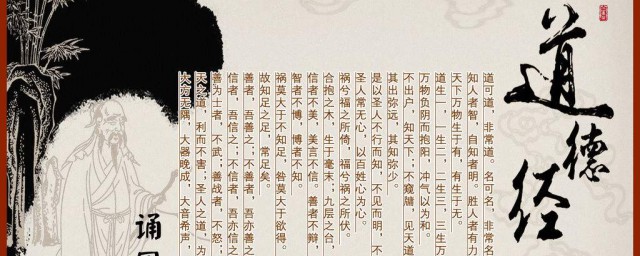 道德经
道可道，非常道。名可名，非常名
知人者智，自知者明。胜人者有力
天下万物生于有，有生于无。
道生一，一生二，二生三，三生万
万物负阴而抱阳，冲气以为和。
不出户，知天下；不窥牖，见天道
其出弥远，其知弥少。
是以圣人不行而知，不见而明，不
圣人常无心，以百姓心为心。
祸兮福之所倚，福兮祸之所伏。
合抱之木，生于毫末；九层之台，
信者不美，美言不信。善者不辩，
智者不博，博者不知。
祸莫大于不知足，咎莫大于欲得。
故知足之足，常足矣。
善者，吾善之；不善者，吾亦善之
信者，吾信之；不信者，吾亦信之
善为士者，不武；善战者，不怒；
天之道，利而不害；圣人之道，为
大方无隅，大器晚成，大音希声，
诵